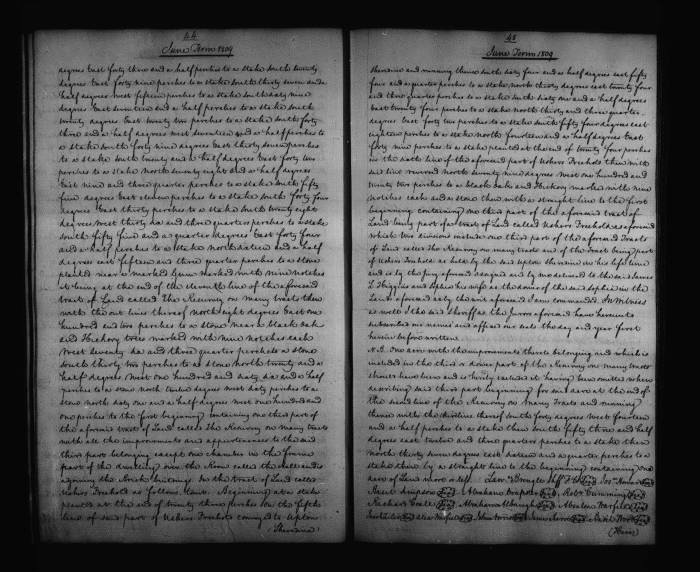 44
June Term 1809
degrees East forty three and a half perches to a stake South twenty
degrees East forty nine perches to a stake South thirty seven and a
half degrees West fifteen perches to a stake South sixty nine
degrees East seventeen and a half perches to a stake South
twenty degrees East twenty two perches to a stake South forty
three and a half degrees West seventeen and a half perches to
a stake South forty nine degrees East thirty seven perches
to a stake South twenty and a half degrees East forty two
perches to a stake North seventy eight and a half degrees
East nine and three quarter perches to a stake South fifty
five degrees East eleven perches to a stake South forty four
degrees East thirty perches to a stake South twenty eight
degrees West thirty six and three quarter perches to a stake
South fifty five and a quarter degrees East forty four
and a half perches to a stake North sixteen and a half
degrees East fifteen and three quarter perches to a stone
planted near a marked Gum marked with nine notches
it being at the end of the eleventh line of the aforesaid
tract of Land called The Resurvey on many tracts then
with the out lines thereof North eight degrees East one
hundred and two perches to a stone near a black oak
and Hickory trees marked with nine notches each
West seventy six and three quarter perches to a stone
South thirty two perches to a stone North twenty and a
half degrees West one hundred and sixty six and a half
perches to a stone North twelve degrees West sixty perches to a
stone North sixty one and a half degrees West one hundred and
one perches to the first beginning containing one third part of
the aforesaid tract of Land called The Resurvey on many tracts
with all the improvements and appurtenances to the said
third part belonging except one chamber in the
part of the dwelling over the Room called the Hall and
adjoining the Brick buildings. In the tract of Land called
Uchers Freehold as follows, to wit. Beginning at a stake
planted at the end of twenty three perches on the fifth
line of said part of Uchers Freehold conveyed to Upton
Sheredine
45
June Term 1809
Sheredine and running thence South sixty four and a half degrees East fifty
four and a quarter perches to a stake North thirty degrees East twenty four
and three quarter perches to a stake South sixty one and a half degrees
East twenty four perches to a stake North thirty and three quarter
degrees East forty two perches to a stake South fifty four degrees East
eighteen perches to a stake North fourteen and a half degrees East
forty nine perches to a stake planted at the end of twenty four perches
in the sixth line of the aforesaid part of Uchers Freehold then with
said line reversed North seventy nine degrees West one hundred and
twenty two perches to a black oak and Hickory marked with nine
notches each and a stone then with a straight line to the first
beginning containing one third part of the aforesaid tract of
Land being part of a tract of Land called Uchers Freehold as aforesaid
which two divisions include one third part of the aforesaid Tracts
of Land called The Resurvey on many tracts and of the Tract being part
of Uchers Freehold as held by the said Upton Sheredine in his life time
and is by the jury aforesaid assigned and by me delivered to the said James
L. Higgins and Sophia his wife as the dower of the said Sophia in the
Lands aforesaid as by the writ aforesaid I am commanded. In Witness
as well I the said Sheriff as the Jurors aforesaid have hereunto
subscribed our names and affixed our seals the day and year first
herein before written
N.B. One acre with the improvements thereto belonging and which is
included in the third or dower part of the Resurvey on many tracts
describing said third part beginning for said acre at the end of
the second line of the Resurvey on Many Tracts and running
thence with the third line thereof South forty degrees West fourteen
and a half perches to a stake then South fifty three and half
degrees East twelve and three quarters perches to a stake then
North thirty seven degrees East sixteen and a half perches to a
stake then by a straight line to the beginning containing one
acre of Land more or less.